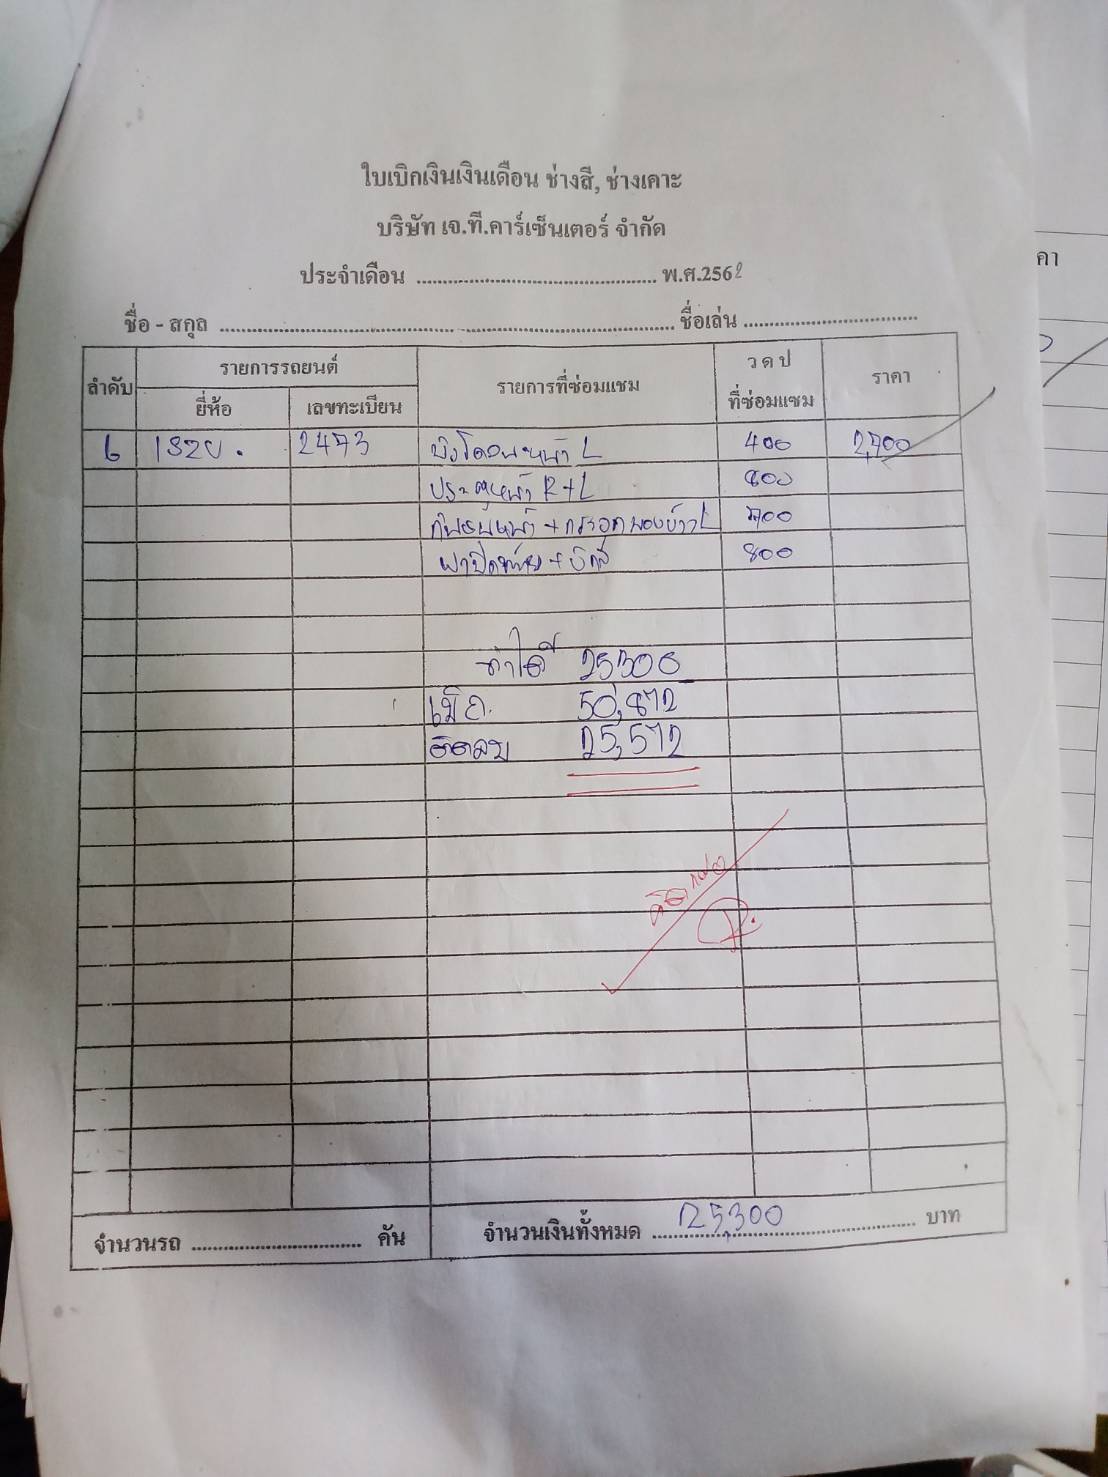 ใบเบิกเงินเงินเดือน ช่างสี, ช่างเคาะ
บริษัท เจ.ที.คาร์เซ็นเตอร์ จำกัด
ประจำเดือน ........................................ พ.ศ.2562
ชื่อ - สกุล ........................................ ชื่อเล่น ..............................
ลำดับ รายการรถยนต์ รายการที่ซ่อมแซม ว ด ป ที่ซ่อมแซม ราคา
ยี่ห้อ เลขทะเบียน
6 2473 บังโคลนหน้า L 400 2,700
ประตูหน้า R+L 800
กันชนหน้า + กระจกมองข้าง L 700
ฝาปิดท้าย + 800
ทำได้ 25,300
เบิก 50,872
ติดลบ 25,572
จำนวนรถ .............................. คัน จำนวนเงินทั้งหมด 25,300 บาท
คา